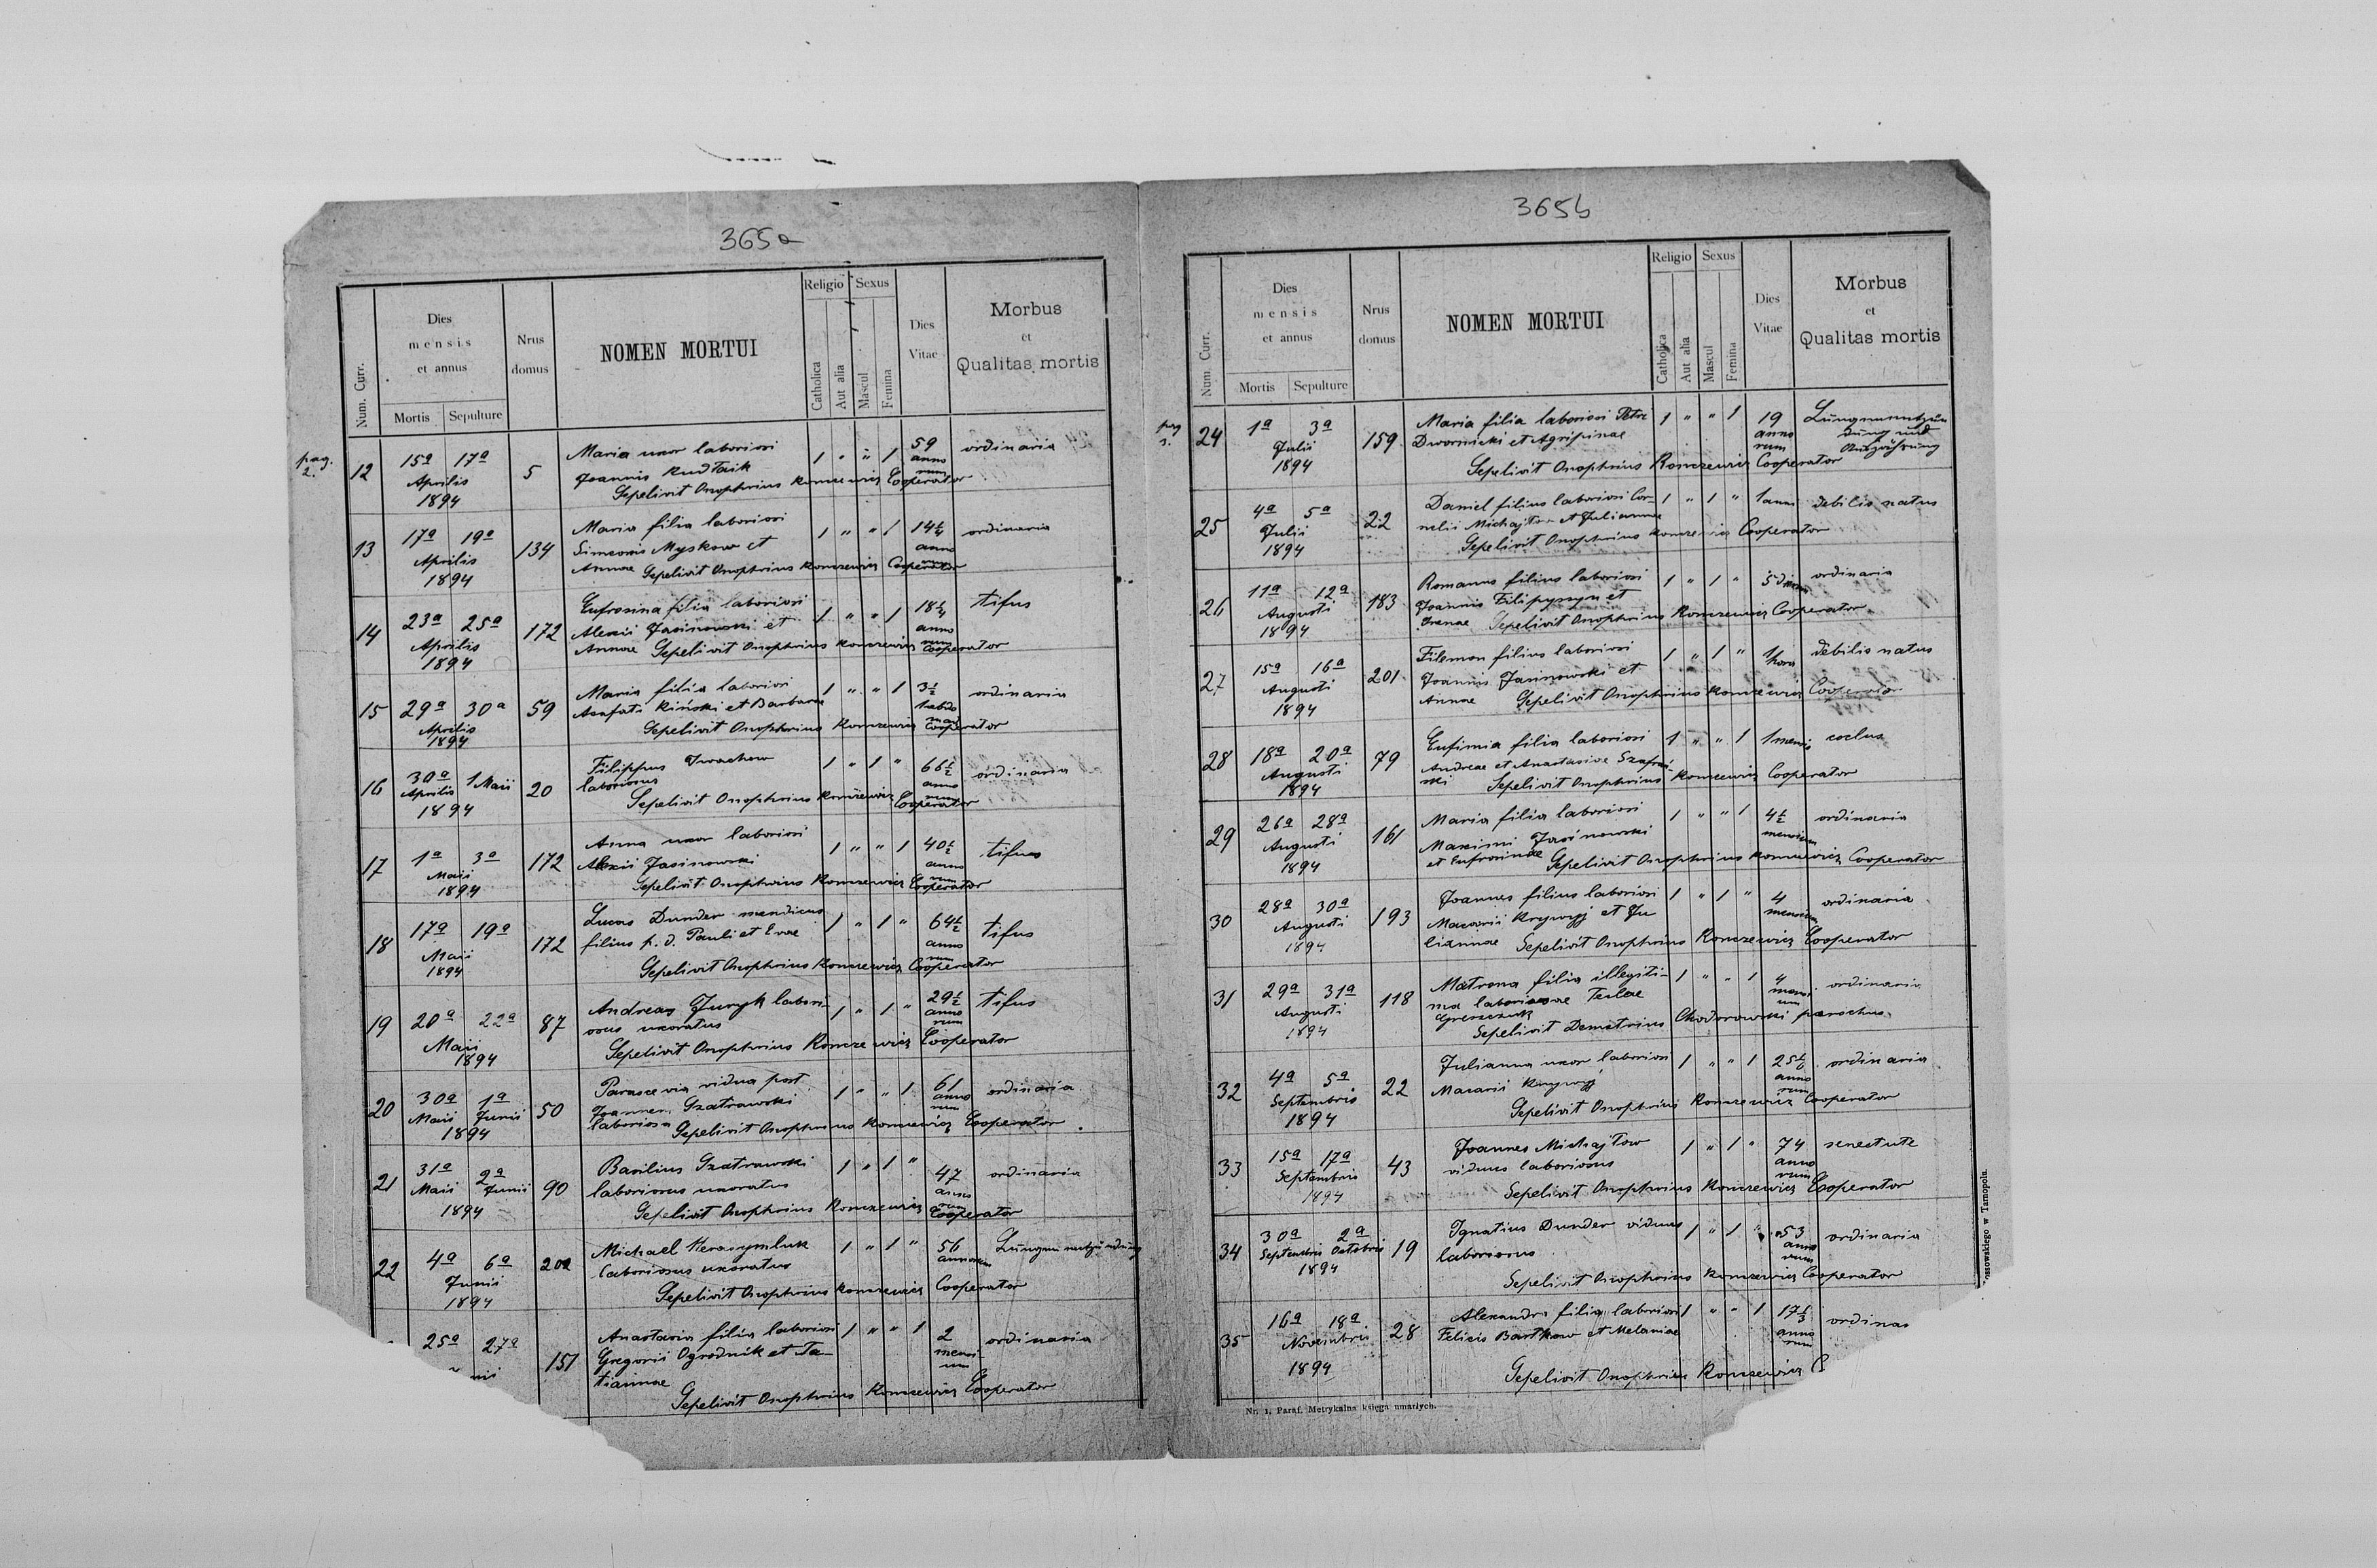 365a
Num. Curr.
Dies
mensis
et annus
Mortis Sepulture
Nrus
domus
NOMEN MORTUI
Religio Sexus
Catholica
Aut alia
Mascul
Femina
Dies
Vitae
Morbus
et
Qualitas mortis
pag.
2.
12 15a 17a Aprilis 1894 5
Maria uxor laboriosi 1 " " 1 59 annorum ordinaria
Joannis Rudtaik
Sepelivit Onophrius Konczewicz Cooperator
13 17a 19a Aprilis 1894 134
Maria filia laboriosi 1 " " 1 14 1/4 annorum ordinaria
Simeonis Myskow et
Annae Sepelivit Onophrius Konczewicz Cooperator
14 23a 25a Aprilis 1894 172
Eufrosina filia laboriosi 1 " " 1 18 1/4 annorum tifus
Alexii Jasinowski et
Annae Sepelivit Onophrius Konczewicz Cooperator
15 29a 30a Aprilis 1894 59
Maria filia laboriosi 1 " " 1 3 1/2 ordinaria
Asafati Kiński et Barbarae
Sepelivit Onophrius Konczewicz Cooperator
16 30a Aprilis 1 Maii 1894 20
Filippus Iwachow 1 " 1 " 66 1/2 annorum ordinaria
laboriosus
Sepelivit Onophrius Konczewicz Cooperator
17 1a 3a Maii 1894 172
Anna uxor laboriosi 1 " " 1 40 1/2 annorum tifus
Alexii Jasinowski
Sepelivit Onophrius Konczewicz Cooperator
18 17a 19a Maii 1894 172
Lucas Dunder mendicus 1 " 1 " 64 1/2 annorum tifus
filius p. d. Pauli et Evae
Sepelivit Onophrius Konczewicz Cooperator
19 20a 22a Maii 1894 87
Andreas Juryk labori- 1 " 1 " 29 1/2 annorum tifus
osus uxoratus
Sepelivit Onophrius Konczewicz Cooperator
20 30a Maii 1a Junii 1894 50
Parascevia vidua post 1 " " 1 61 annorum ordinaria
Joannem Szatrawski
laboriosa Sepelivit Onophrius Konczewicz Cooperator
21 31a Maii 2a Junii 1894 90
Basilius Szatrawski 1 " 1 " 47 annorum ordinaria
laboriosus uxoratus
Sepelivit Onophrius Konczewicz Cooperator
22 4a 6a Junii 1894 202
Michael Herasymluk 1 " 1 " 56 annorum Lungenentzündung
laboriosus uxoratus
Sepelivit Onophrius Konczewicz Cooperator
25a 27a 151
Anastasia filia laboriosi 1 " " 1 2 mensium ordinaria
Gregorii Ogrodnik et Ta-
tiannae
Sepelivit Onophrius Konczewicz Cooperator
365b
Num. Curr.
Dies
mensis
et annus
Mortis Sepulture
Nrus
domus
NOMEN MORTUI
Religio Sexus
Catholica
Aut alia
Mascul
Femina
Dies
Vitae
Morbus
et
Qualitas mortis
pag
3.
24 1a 3a Julii 1894 159
Maria filia laboriosi Petri 1 " " 1 19 annorum Lungenentzün
Dwornicki et Agripinae dung und
Auszährung
Sepelivit Onophrius Konczewicz Cooperator
25 4a 5a Julii 1894 22
Daniel filius laboriosi Cor- 1 " 1 " 1 anni debilis natus
nelii Michajłow et Juliannae
Sepelivit Onophrius Konczewicz Cooperator
26 11a 12a Augusti 1894 183
Romanus filius laboriosi 1 " 1 " 5 dierum ordinaria
Joannis Filipyszyn et
Irenae Sepelivit Onophrius Konczewicz Cooperator
27 15a 16a Augusti 1894 201
Filemon filius laboriosi 1 " 1 " 1 hora debilis natus
Joannis Jasinowski et
Annae Sepelivit Onophrius Konczewicz Cooperator
28 18a 20a Augusti 1894 79
Eufimia filia laboriosi 1 " " 1 1 mensis coclus
Andreae et Anastasiae Szafrań
ski Sepelivit Onophrius Konczewicz Cooperator
29 26a 28a Augusti 1894 161
Maria filia laboriosi 1 " " 1 4 1/2 mensium ordinaria
Maximi Jasinowski
et Eufrosinae Sepelivit Onophrius Konczewicz Cooperator
30 28a 30a Augusti 1894 193
Joannes filius laboriosi 1 " 1 " 4 mensium ordinaria
Macarii Krywyj et Ju
liannae Sepelivit Onophrius Konczewicz Cooperator
31 29a 31a Augusti 1894 118
Matrona filia illegiti- 1 " " 1 4 mensium ordinaria
ma laboriosae Teclae
Greszczuk
Sepelivit Demetrius Chodorowski parochus
32 4a 5a Septembris 1894 22
Julianna uxor laboriosi 1 " " 1 25 1/6 annorum ordinaria
Macarii Krywyj
Sepelivit Onophrius Konczewicz Cooperator
33 15a 17a Septembris 1894 43
Joannes Michajłow 1 " 1 " 74 annorum senectute
viduus laboriosus
Sepelivit Onophrius Konczewicz Cooperator
34 30a Septembris 2a Octobris 1894 19
Ignatius Dunder viduus 1 " 1 " 53 annorum ordinaria
laboriosus
Sepelivit Onophrius Konczewicz Cooperator
35 16a 18a Novembris 1894 28
Alexandra filia laboriosi 1 " " 1 17 1/3 annorum ordinas
Felicis Bartkow et Melaniae
Sepelivit Onophrius Konczewicz C
Nr. 1. Paraf. Metrykalna księga umarłych.
ossowskiego w Tarnopolu.